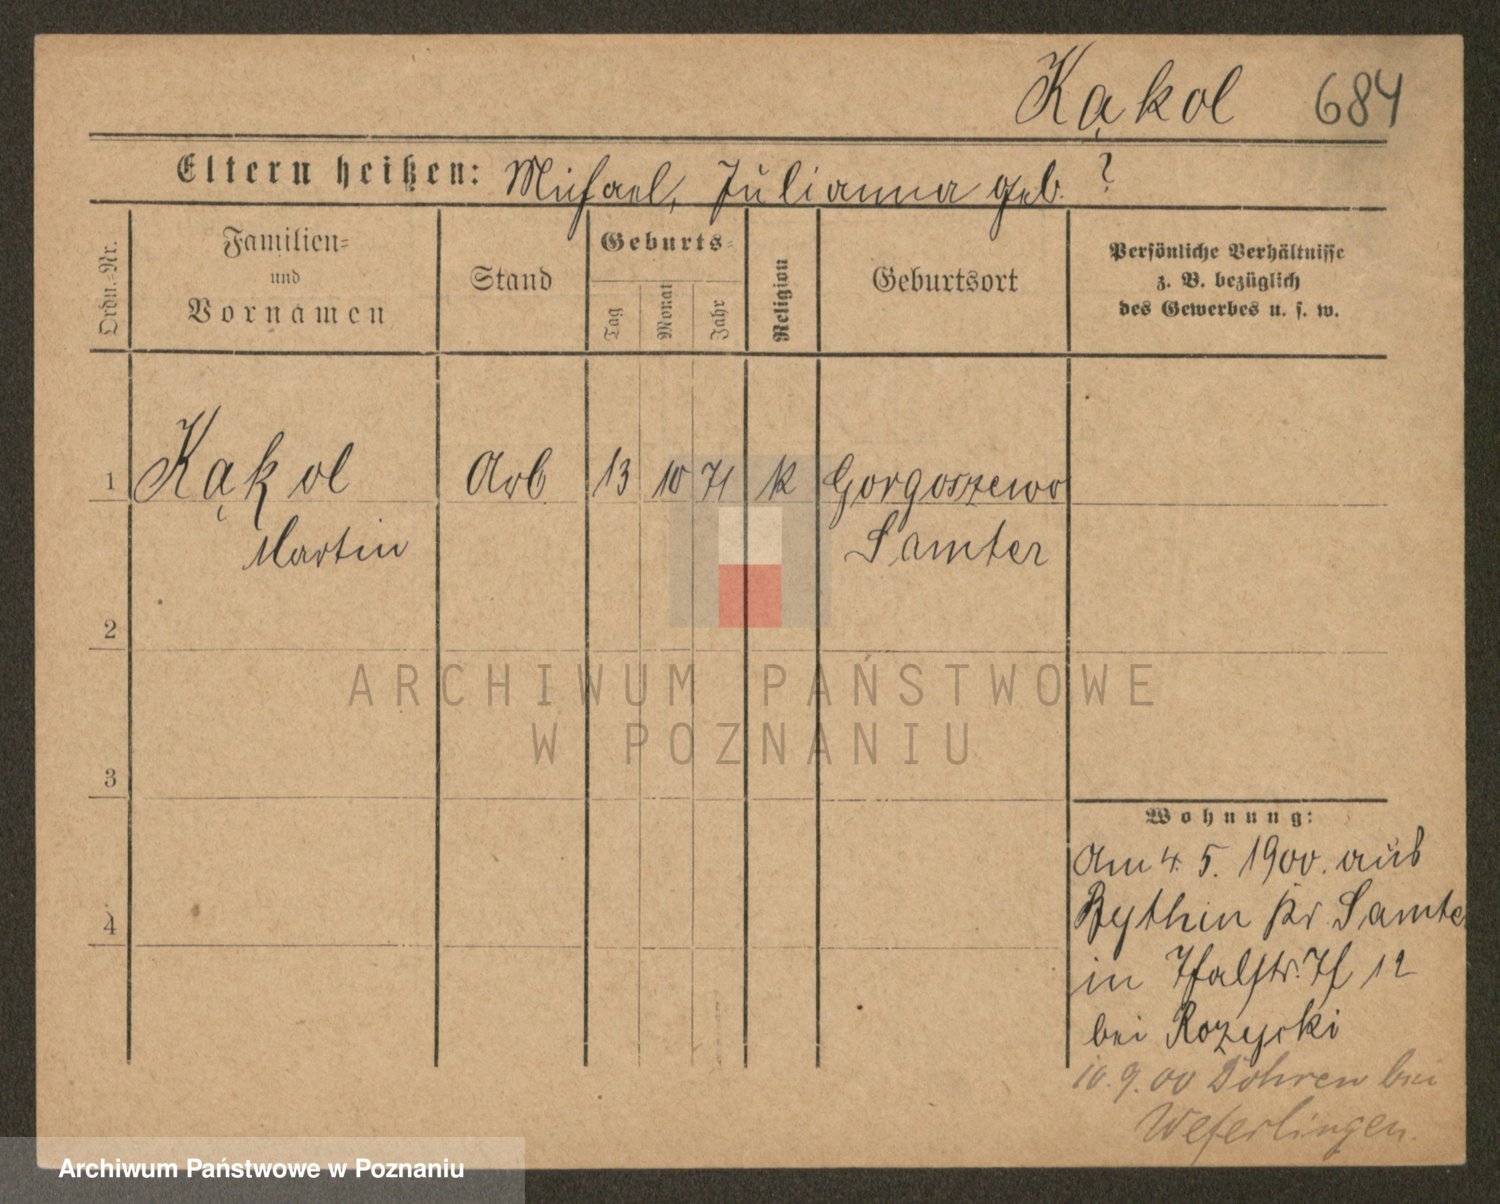 Kąkol 684
Eltern heißen: Michael, Julianna geb. ?
Ordn.-Nr.
Familien-
und
Vornamen
Stand
Geburts-
Tag
Monat
Jahr
Religion
Geburtsort
Persönliche Verhältnisse
z. B. bezüglich
des Gewerbes u. s. w.
1 Kąkol Arb 13 10 71 k Gorgoszewo
Martin Samter
2
3
4
Wohnung:
Am 4. 5. 1900. aus
Bythin Kr. Samter
in 12
bei Rozycki
10. 9. 00 Döhren bei
Weferlingen.
ARCHIWUM PAŃSTWOWE
W POZNANIU
Archiwum Państwowe w Poznaniu